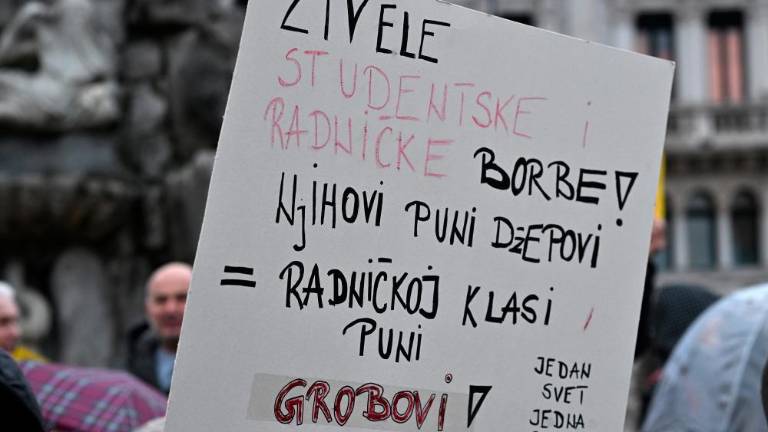 ŽIVELE
STUDENTSKE i
RADNIČKE BORBE!
NjIHOVI PUNI DžEPOVI
= RADNIČKOJ KLASI
PUNI
GROBOVI!
JEDAN
SVET
JEDNA